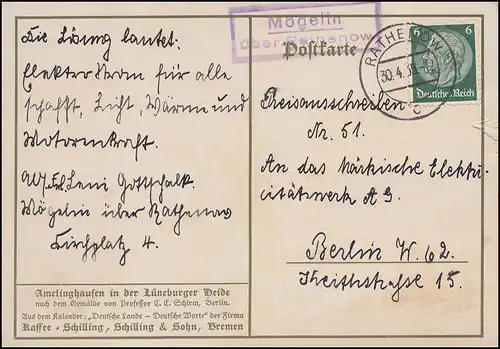 Die Lösung lautet:
Elektr. Strom für alle
schafft, Licht, Wärme und
Motorenkraft.
Leni Gottschalk.
Mögelin über Rathenow
Kirchplatz 4.
Amelinghausen in der Lüneburger Heide
nach dem Gemälde von Professor C. C. Schirm, Berlin.
Aus dem Kalender: „Deutsche Lande – Deutsche Worte“ der Firma
Kaffee-Schilling, Schilling & Sohn, Bremen
Mögelin
über Rathenow
Postkarte
RATHENOW
30.4.
c
6 6
Deutsches Reich
Preisausschreiben
Nr. 51.
An das Märkische Elektri-
citätswerk A G.
Berlin W. 62.
Keithstrasse 15.